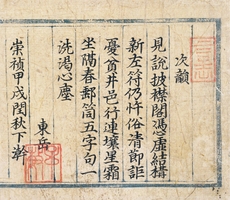 次韻
見說披襟閣憑虛結構
新左符仍忤俗清節詎
憂貧井邑行連壤星霜
坐隔春郵筒五字句一
洗渴心塵
東岳
崇禎甲戌閏秋下澣